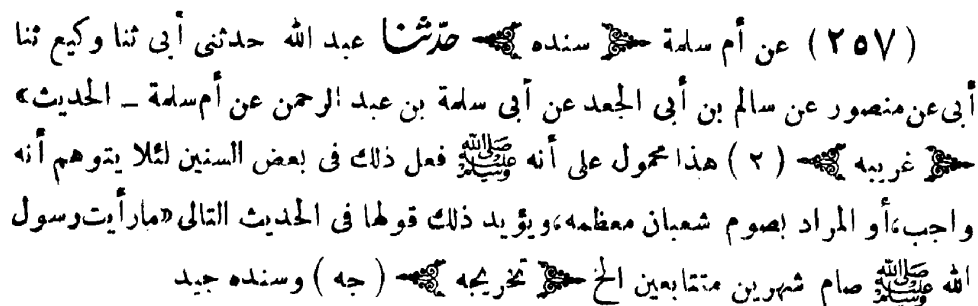 (٢٥٧) عن أم سلمة ﴿ سنده ﴾ حدّثنا عبد الله حدثنى أبى ثنا وكيع ثنا
أبى عن منصور عن سالم بن أبى الجعد عن أبى سلمة بن عبد الرحمن عن أم سلمة ــ الحديث»
﴿ غريبه ﴾ (٢) هذا محمول على أنه ﷺ فعل ذلك فى بعض السنين لئلا يتوهم أنه
واجب،أو المراد بصوم شعبان معظمه،ويؤيد ذلك قولها فى الحديث التالى «مارأيت رسول
الله ﷺ صام شهرين متتابعين الخ ﴿ تخريجه ﴾ ( جه ) وسنده جيد